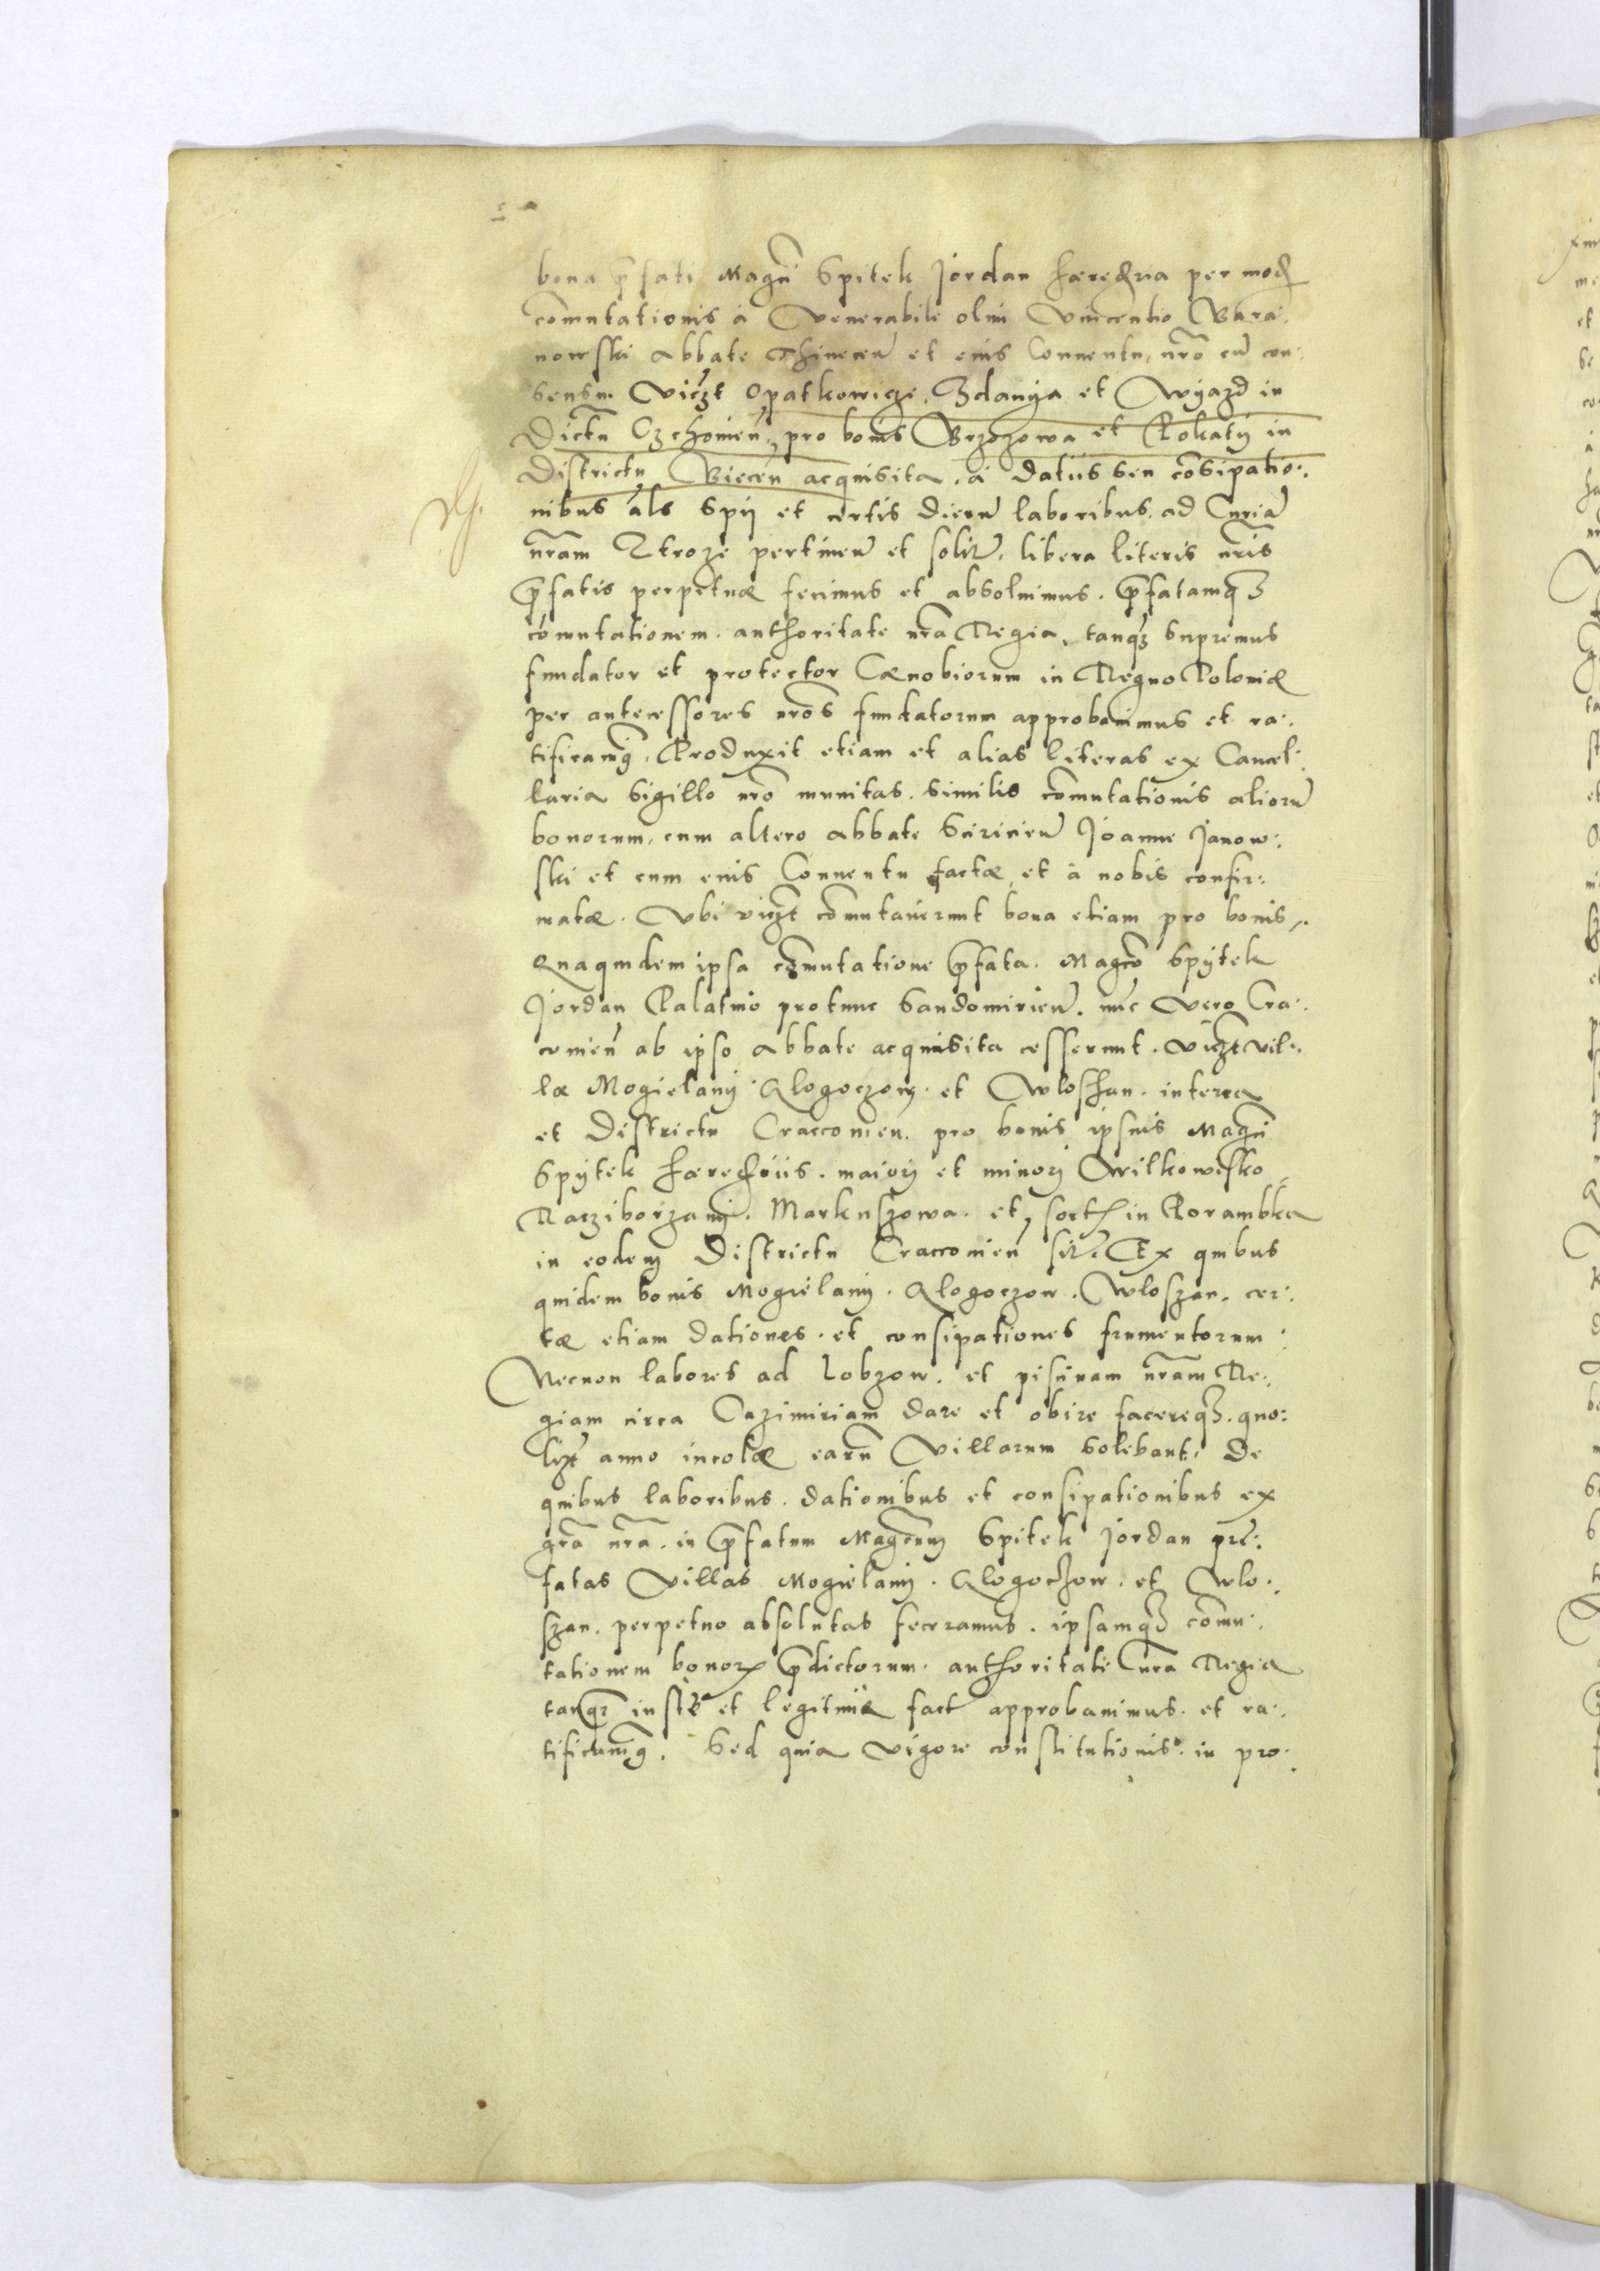 bona p̄fati Magn̄i Spitek Jordan hæredria per mod
com̄utationis à Venerabile olim Vincentio Bara:
nowski Abbate Thinecen̄ et eius Conuentu, nr̄o cū con:
sensu. Viczt Opatkowicze, Zdanya et Wyazd in
Dictu Czchouien̄, pro bonis Brzozowa et Rokaty in
Districtu Biecen̄ acquisita, à datiis seu cōsipatio:
nibus als spij et certis dierū laboribus, ad Curiā
nr̄am Ztroze pertineñ et solit̄, libera literis nr̄is
p̄fatis perpetuæ fecimus et absoluimus. P̄fatamq3
com̄utationem authoritate nr̄a Regia, tanq̄3 supremus
fundator et protector Cænobiorum in Regno Poloniæ
per antecessores nr̄os funtatorum approbauimus et ra:
tificamq̄. Produxit etiam et alias literas ex Cancel:
laria sigillo nr̄o munitas. similis com̄utationis aliorū
bonorum, cum altero Abbate Sciricien̄ Joanne Janow:
ski et cum eius Conuentu factæ, et à nobis confir:
matæ. Vbi viczt com̄utauerunt bona etiam pro bonis,.
Quaquidem ipsa com̄utatione p̄fata. Magco Spÿtek
Jordan Palatino protunc Sandomirien̄. nūc Vero Cra:
couien̄ ab ipso Abbate acquisita cesserunt. viczt vil:
læ Mogielany. Glogoczow. et Wloshan. in terra
et Districtu Craccouien. pro bonis ipsius Magn̄i
Spÿtek hæredriis. maiorj et minorj Wilkowisko
Racziborzany. Markuszowa. et sorte in Porambka
in eodem Districtu Craccouien̄ sit̄. Ex quibus
quidem bonis Mogielany. Glogoczow. Wloszan. cer:
tæ etiam dationes. et consipationes frumentorum:
Necnon labores ad Lobzow. et piscinam nr̄am Re:
giam circa Cazimiriam dare et obire facereq3. quo:
lizt anno incolæ earū Villarum solebant, De
quibus laboribus. dationibus et consipationibus ex
gr̄a nr̄a. in p̄fatum Magcum Spitek Jordan prē:
fatas Villas Mogielany. Glogochow. et Wlo:
szan. perpetuo absolutas feceramus. ipsamq3 com̄u:
tationem bonor p̄dictorum. authoritati nr̄a Regia
tanq3 iuste et legitimæ fact approbauimus. et ra:
tificamq̄. Sed quia vigore constitutionis. in pro: